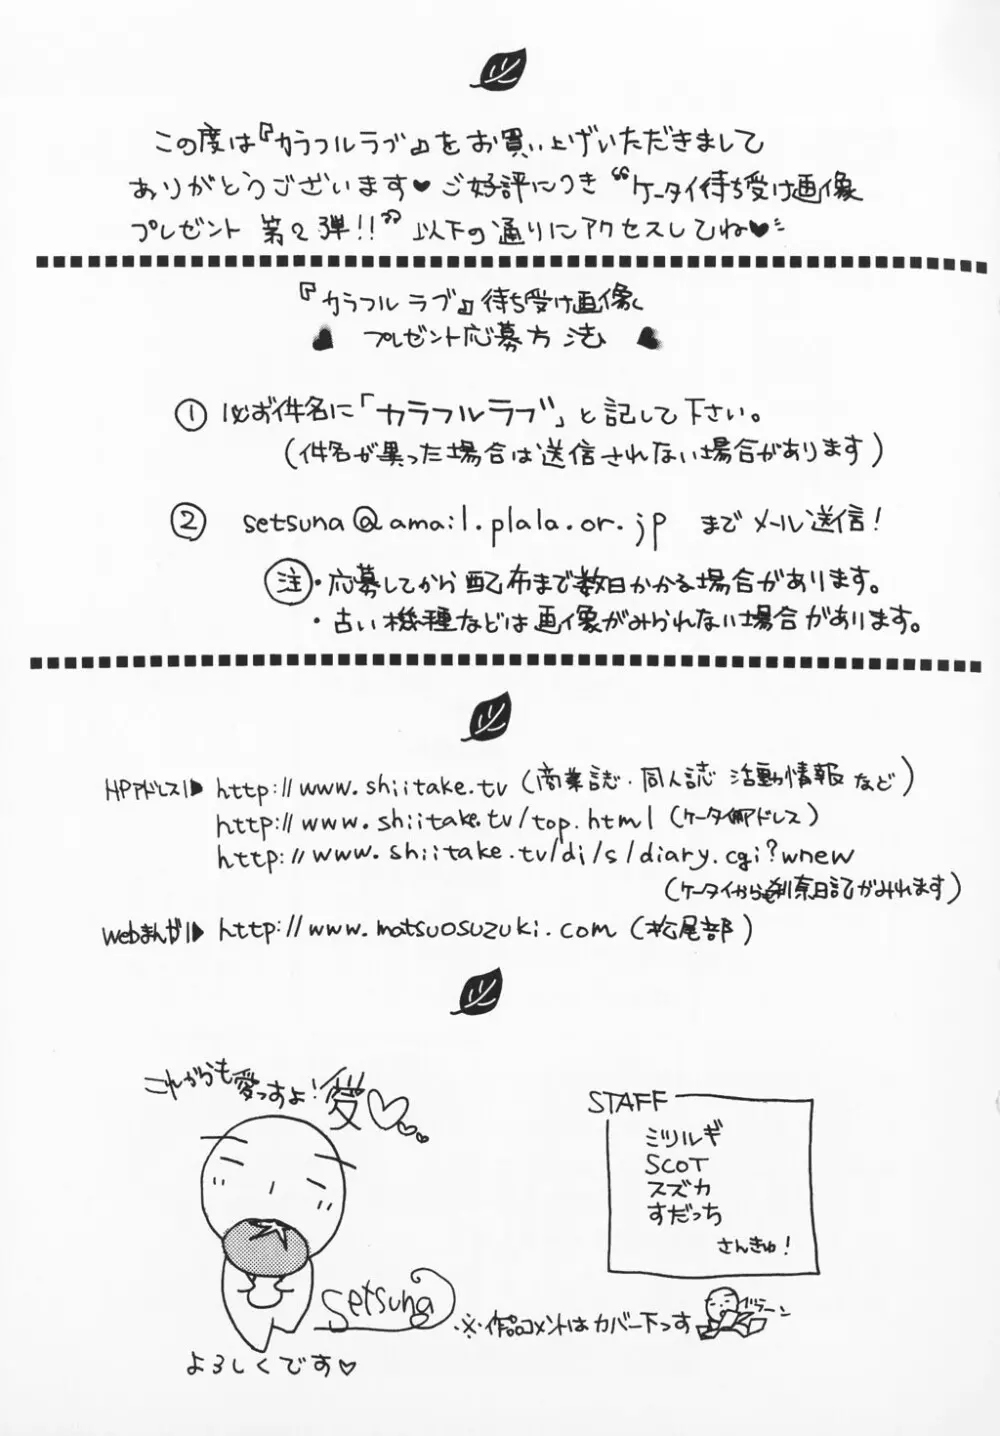 この度は『カラフルラブ』をお買い上げいただきまして
ありがとうございます♥ご好評につき“ケータイ待ち受け画像
プレゼント 第2弾!!”以下の通りにアクセスしてね♥
『カラフルラブ』待ち受け画像
プレゼント応募方法
① 必ず件名に「カラフルラブ」と記して下さい。
(件名が異った場合は送信されない場合があります)
② setsuna@amail.plala.or.jp までメール送信!
注・応募してから配布まで数日かかる場合があります。
・古い機種などは画像がみられない場合があります。
HPアドレス▶ http://www.shiitake.tv (商業誌・同人誌 活動情報 など)
http://www.shiitake.tv/top.html (ケータイ用アドレス)
http://www.shiitake.tv/di/s/diary.cgi?wnew
(ケータイからも刹奈日記がみれます)
Webまんが▶ http://www.matsuosuzuki.com (松尾部)
これからも愛っすよ!愛♡
Setsuna
よろしくです♡
STAFF
ミツルギ
SCOT
スズカ
すだっち
さんきゅ!
※作品コメントはカバー下っす